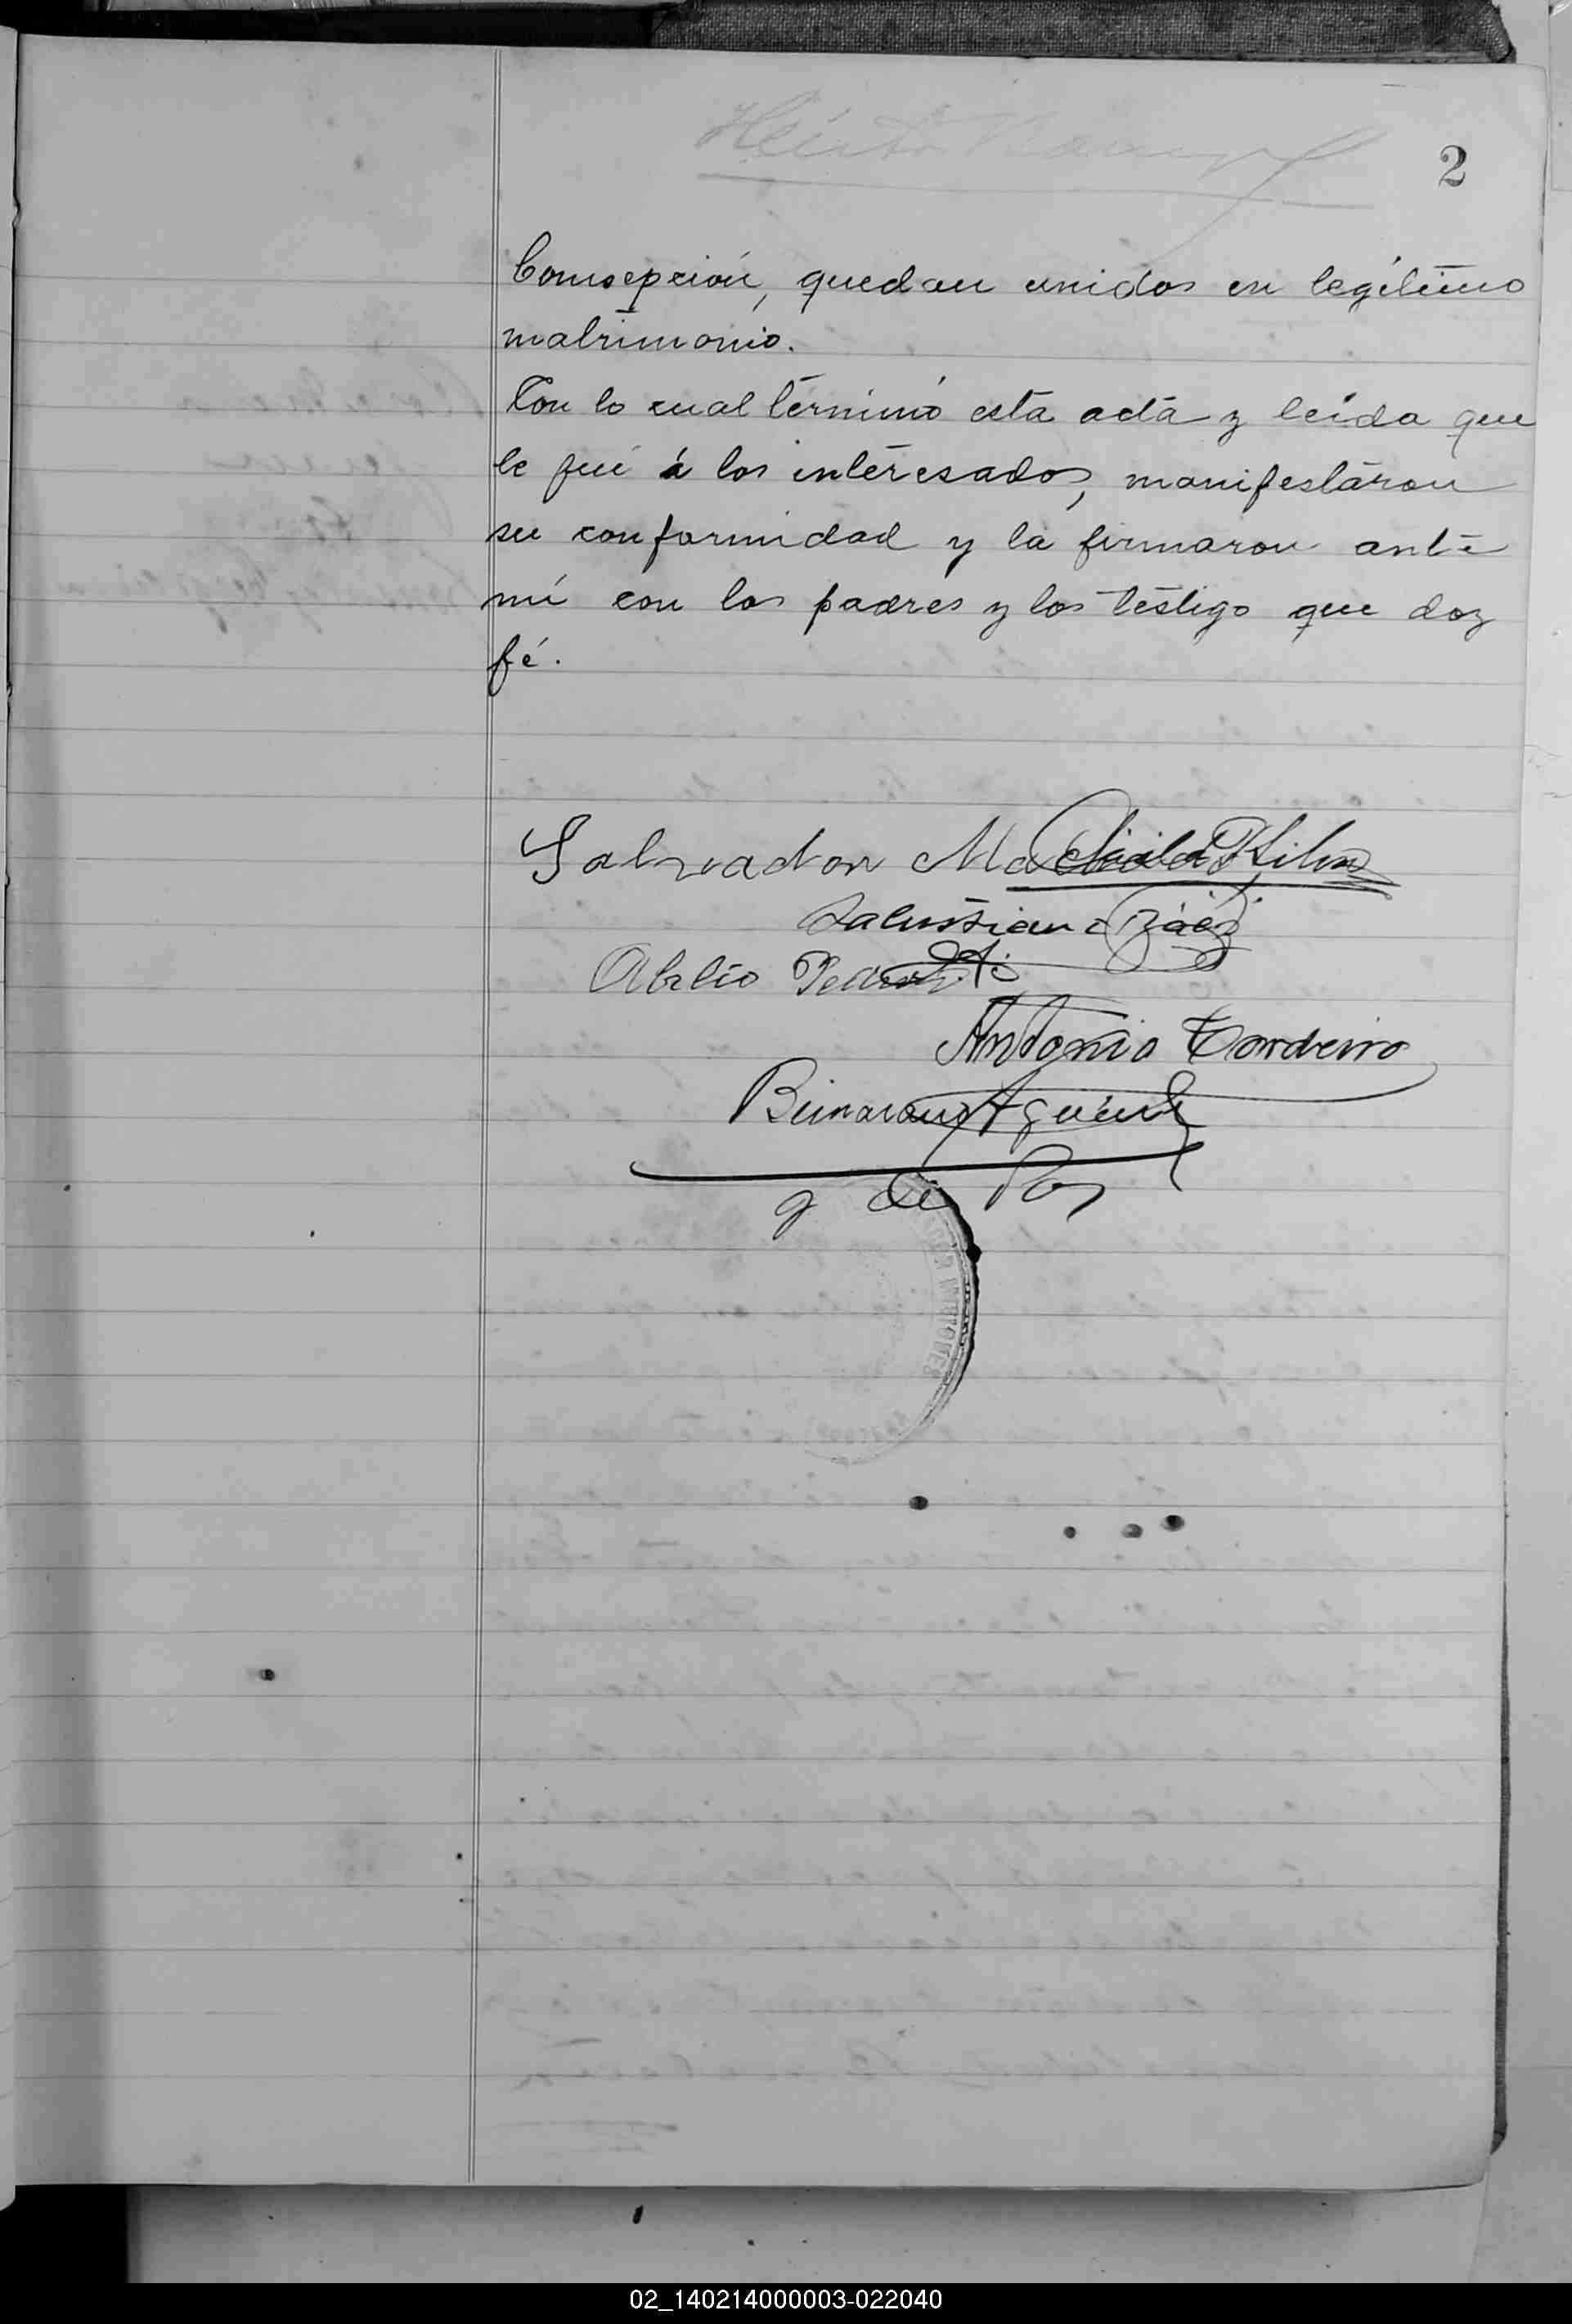 2
Comsepción, quedan unidos en legítimo
matrimonio.
Con lo cual términó esta acta y leida que
le fué á los interesados, manifestaron
su conformidad y la firmaron ante
mí con los padres y los testigo que doy
fé.
Salvador
Salustiano Báez
Abelio
Antonio Cordeiro
J de Paz
02_140214000003-022040